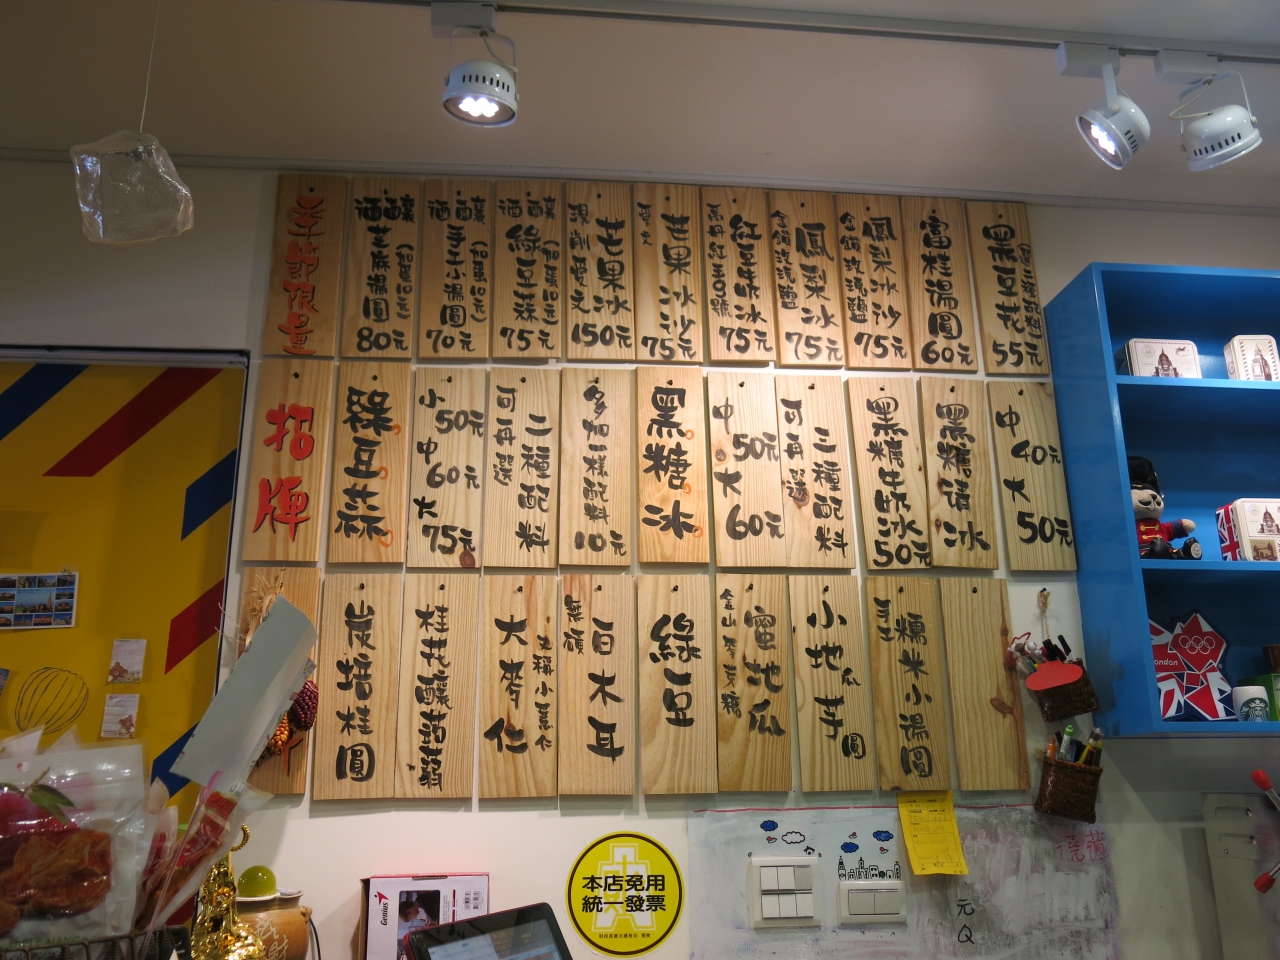 季節限量
酒釀
芝麻湯圓
(加蛋10元)
80元
酒釀
手工小湯圓
(加蛋10元)
70元
酒釀
綠豆蒜
(加蛋10元)
75元
現削愛文
芒果冰
150元
愛文
芒果冰沙
75元
萬丹紅
紅豆牛奶冰
75元
鳳梨冰
75元
鳳梨冰沙
75元
富桂湯圓
60元
黑豆花
55元
招牌
綠豆蒜
小 50元
中 60元
大 75元
可再選
二種配料
多加一樣配料
10元
黑糖冰
中 50元
大 60元
可再選
三種配料
黑糖牛奶冰
50元
黑糖清冰
中 40元
大 50元
炭培桂圓
桂花釀蒟蒻
大麥仁
又稱小薏仁
無硫
白木耳
綠豆
金山麥芽糖
蜜地瓜
小地瓜芋圓
手工
糯米小湯圓
本店免用
統一發票
Genius
London
元
Q